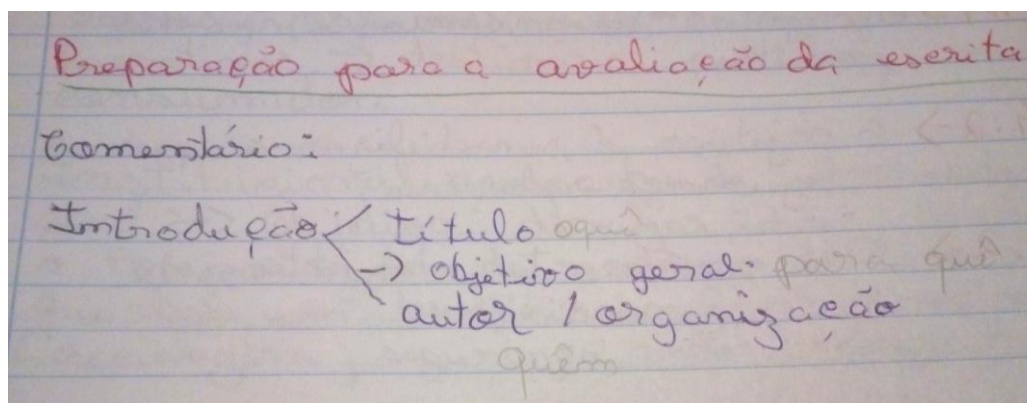 Preparação para a avaliação da escrita
Comentário:
Introdução título oquê
-> objetivo geral. para quê
autor / organização
quêm